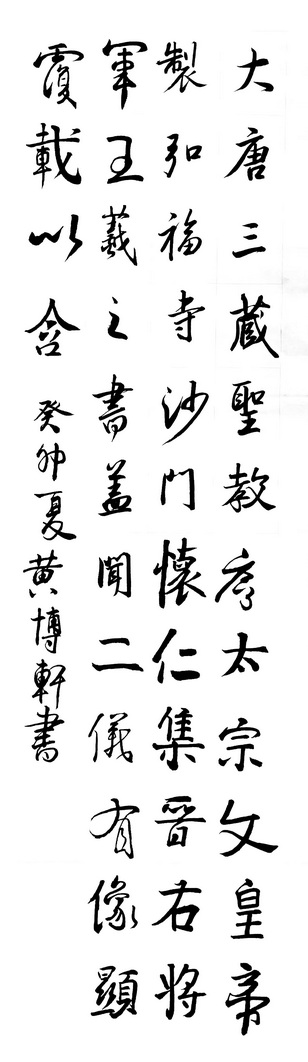 大唐三藏聖教序太宗文皇帝
製弘福寺沙門懷仁集晉右將
軍王羲之書蓋聞二儀有像顯
覆載以含
癸卯夏黃博軒書